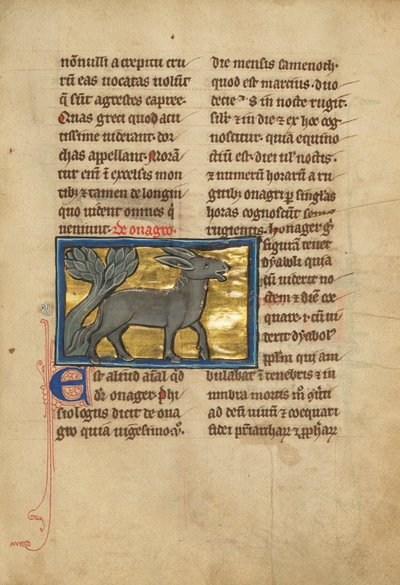 nōnulli a crepitu cru
rū eas uocatas uolūt
q̄ sūt agrestes capree.
Quas greci quod acu
tissime uiderant dor
chas appellant. Morā
tur enī ī excelsis mon
tibꝫ ⁊ tamen de longin
quo uident omnes q̄
ueniunt. De onagro.
Est aliud aīal qd
dr̄ onager. Phi
siologus dicit de ona
gro quia uigesimo v.
die mensis famenoth.
quod est marcius. duo
decies in nocte rugit.
silr̄ ⁊ in die ⁊ ex hoc cog
noscitur. quia equino
ctiū est. diei ul̓ noctis.
⁊ numerū horarū a ru
gitibꝫ onagri ꝑ singl̓as
horas cognoscūt semel
rugientis. Honager gͦ
figurā tenet
dyaboli quia
cū uiderit no
ctem ⁊ diē co
equare. i. cū ui
derit dyabolꝰ
pplm̄ qui am
bulabat ī tenebris ⁊ in
umbra mortis
ad deū uiuū ⁊ coequari
fidei pr̄iarchaꝝ ⁊ ꝓphaꝝ